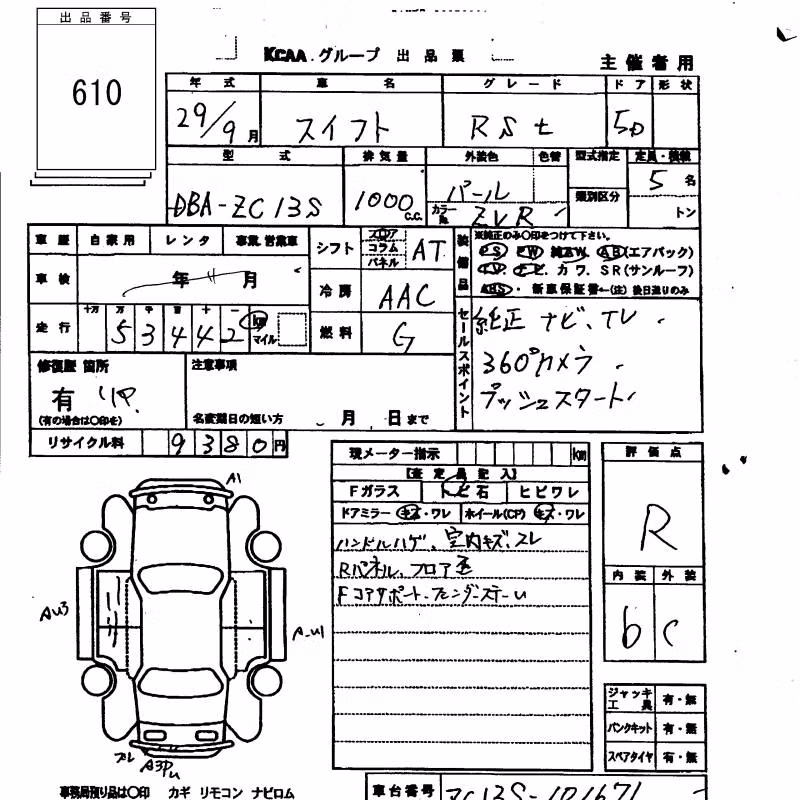 出品番号
610
KCAA.グループ 出品票
主催者用
年式 車名 グレード ドア 形状
29/9月 スイフト RSt 5D
型式 排気量 外装色 色替 型式指定 定員・積載
DBA-ZC13S 1000 C.C. パール 類別区分 5名
カラーNo. ZVR トン
車歴 自家用 レンタ 事業.営業車
シフト フロア コラム パネル AT
装備品 ※純正のみ○印をつけて下さい。
PS PW 純AW AB(エアバック)
TV ナビ カワ SR(サンルーフ)
ABS 新車保証書←(注)後日送りのみ
車検 年 月
冷房 AAC
走行 十万 万 千 百 十 一
53442 km マイル
燃料 G
セールスポイント
純正ナビ、TV
360°カメラ
プッシュスタート
修復歴 箇所 注意事項
有 リア
(有の場合は○印を) 名変期日の短い方 月 日まで
リサイクル料 9380円
現メーター指示 km
【査定員記入】
Fガラス トビ石 ヒビワレ
ドアミラー キズ・ワレ ホイール(CP) キズ・ワレ
ハンドルハゲ、室内キズ、スレ
Rパネル、フロア歪
Fコアサポート、フェンダーステーU
評価点
R
内装 外装
b C
A1
AU3
A-U1
ブレ A3PU
ジャッキ工具 有・無
パンクキット 有・無
スペアタイヤ 有・無
事務局預り品は○印 カギ リモコン ナビロム
車台番号 ZC13S-101671